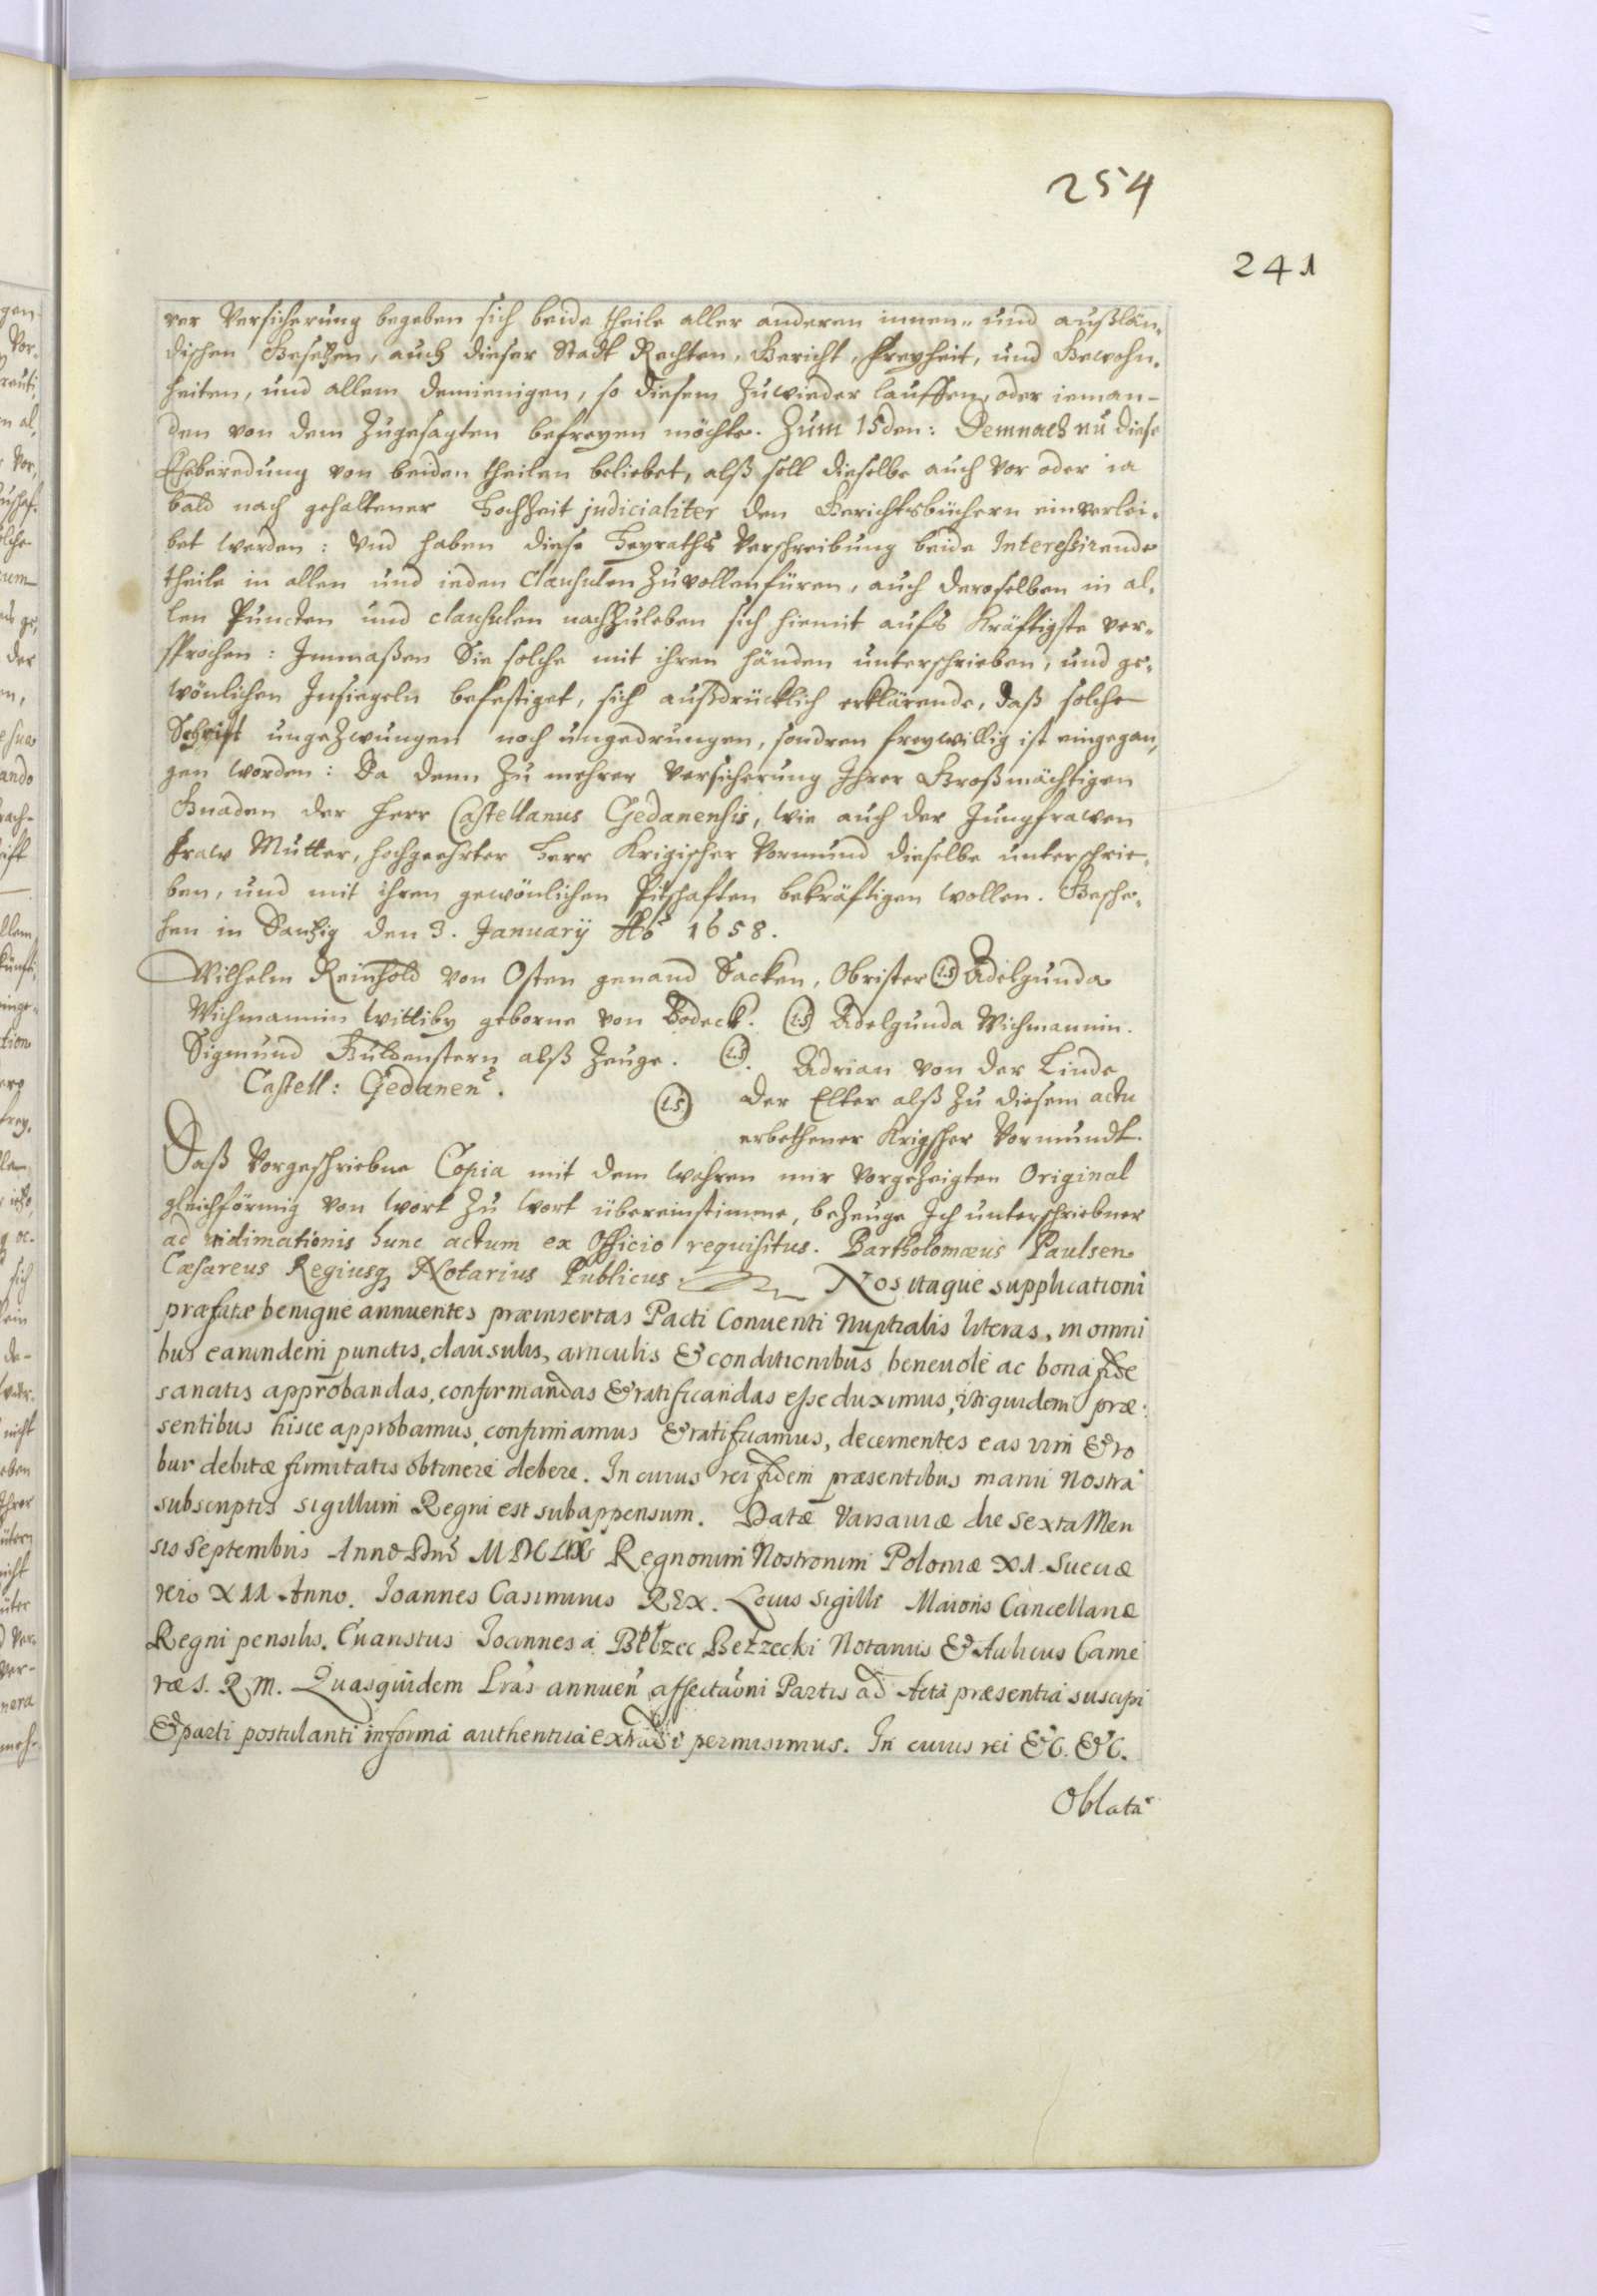 254
241
rer Versicherung begeben sich beide theile aller anderen innen- und außlän-
dischen Gesetzen, auch dieser Stadt Rechten, Gericht, Freyheit, und Gewohn-
heiten, und allem demienigen, so diesem zuwieder lauffen, oder ieman-
den von dem Zugesagten befreyen möchte. Zum 15den: Demnach nu diese
Eheberedung von beiden theilen beliebet, alß soll dieselbe auch vor oder ia
bald nach gehaltener Hochzeit judicialiter den Gerichtsbüchern einverlei-
bet werden: Vnd haben diese Heyraths Verschreibung beide Interessirende
theile in allen und ieden Clausulen zuvollenfüren, auch deroselben in al-
len Puncten und clausulen nachzuleben sich hiemit aufs kräftigste ver-
sprochen: Inmaßen Sie solche mit ihren händen unterschrieben, und ge-
wönlichen Insiegeln befestiget, sich außdrücklich erklärende, daß solche
Schrift ungezwungen noch ungedrungen, sondren freywillig ist eingegan-
gen worden: Da denn zu mehrer Versicherung Ihrer Großmächtigen
Gnaden der Herr Castellanus Gedanensis, wie auch der Jungfrawen
Fraw Mutter, hochgeehrter Herr Krigischer Vormund dieselbe unterschrie-
ben, und mit ihren gewönlichen Pitschaften bekräftigen wollen. Gesche-
hen in Dantzig den 3. January Ao 1658.
Wilhelm Reinhold von Osten genand Sacken, Obrister (L.S) Adelgunda
Wichmannin Wittiby geborne von Bodeck. (L.S) Adelgunda Wichmannin.
Sigmund Güldenstern alß Zeuge. (L.S). Adrian von der Linde
Castell: Gedanen. (L.S) der Elter alß zu diesem actu
erbethener Krigscher Vormundt.
Daß Vorgeschriebne Copia mit dem wahren mir vorgezeigten Original
gleichförmig von wort zu wort übereinstimme, bezeuge Ich unterschriebner
ad vidimationis hunc actum ex Officio requisitus. Bartholomæus Paulsen
Cæsareus Regiusq Notarius Publicus. Nos itaque supplicationi
præfatæ benigne annuentes præinsertas Pacti Conventi Nuptialis literas, in omni
bus earundem punctis, clausulis, articulis & conditionibus, benevole ac bona fide
sancitis approbandas, confirmandas & ratificandas esse duximus, uti quidem præ:
sentibus hisce approbamus, confirmamus & ratificamus, decernentes eas vim & ro
bur debitæ firmitatis obtinere debere. In cuius rei fidem præsentibus manu Nostra
subscriptis sigillum Regni est subappensum. Datæ Varsaviæ die Sexta Men
sis Septembris Anno Dni MDCLIX Regnorum Nostrorum Poloniæ XI Sueciæ
vero XII Anno. Ioannes Casimirus REX. Locus Sigilli Maioris Cancellariæ
Regni pensilis. Evaristus Ioannes a Bełzec Bełzecki Notarius & Aulicus Came
ræ S. R. M. Quasquidem Lras annuen affectaoni Partis ad Acta præsentia suscipi
& parti postulanti in forma authentica extradi permisimus. In cuius rei &c. &c.
Oblata